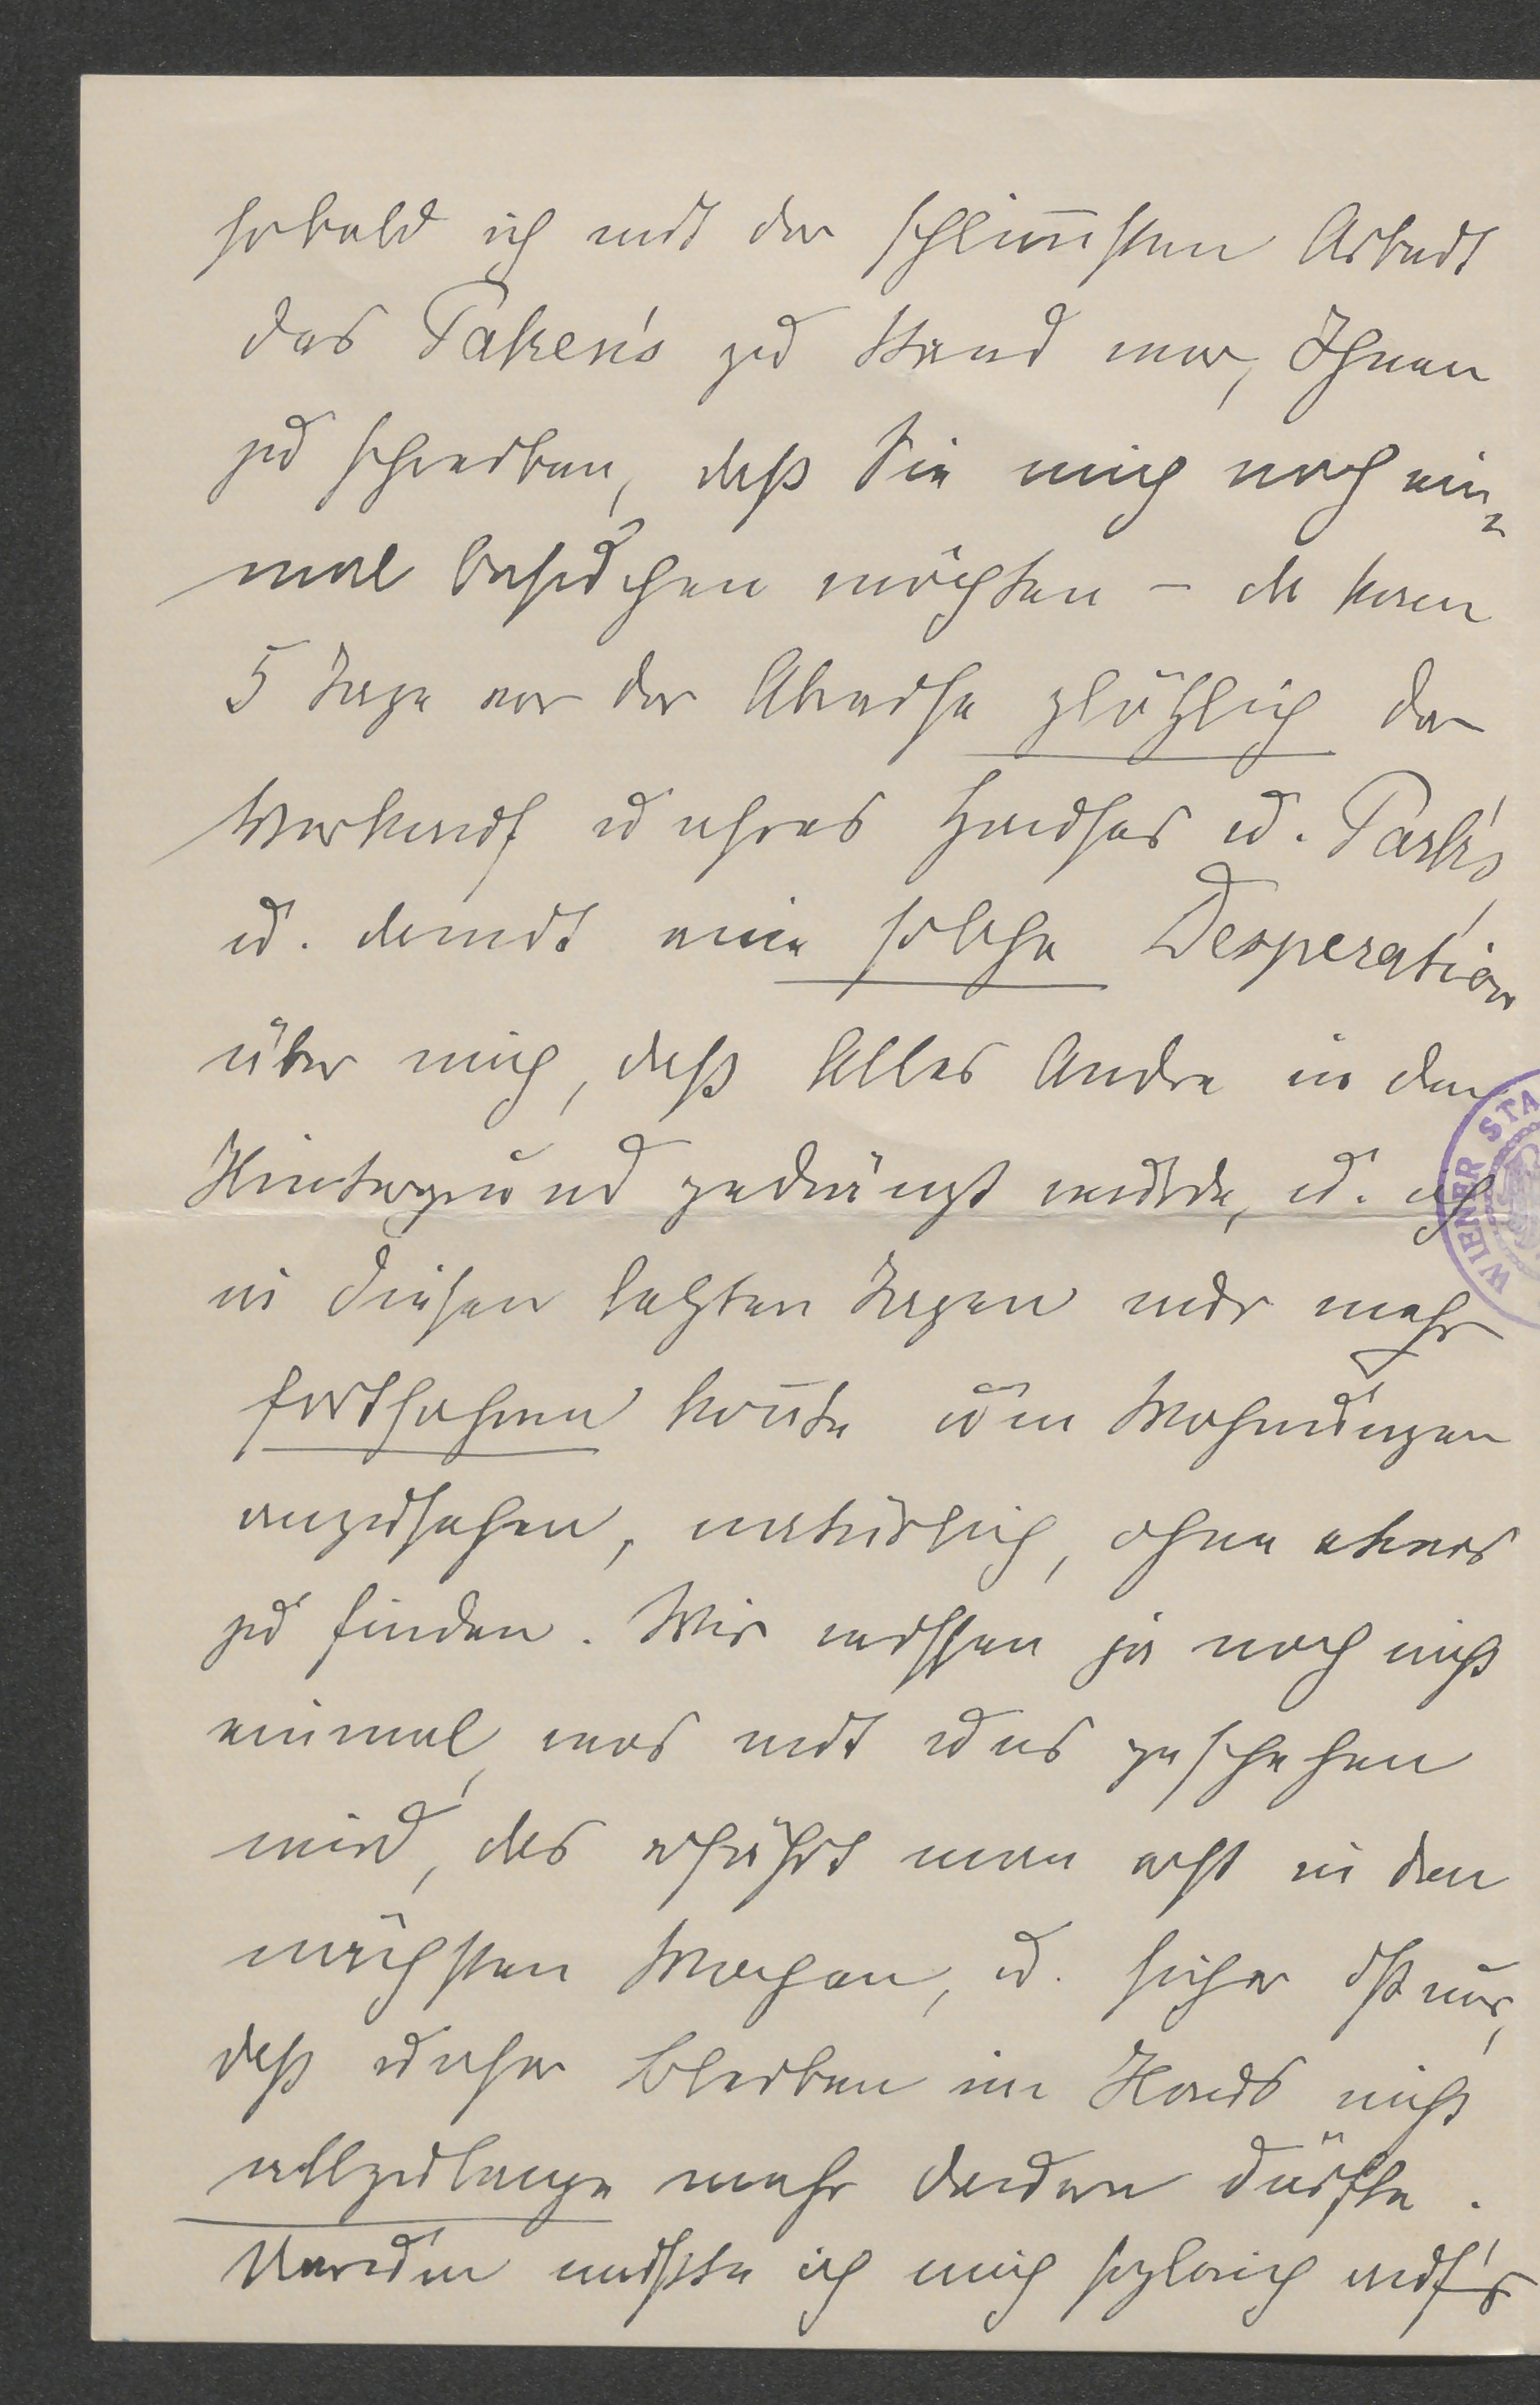 sobald ich mit der schlim̄sten Arbeit
des Paken's zu Rand war, Ihnen
zu schreiben, daß Sie mich noch ein-
mal besuchen möchten – da kam
5 Tage vor der Abreise plötzlich der
Verkauf unsres Hauses u. Park's,
u. damit eine solche Desperation
über mich, daß Alles Andre in den
Hintergrund gedrängt wurde, u. ich
in diesen letzten Tagen nur mehr
fortfahren kon̄te um Wohnungen
anzusehen, natürlich, ohne etwas
zu finden. Wir wissen ja noch nicht
einmal, was mit uns geschehen
wird, das erfährt man erst in den
nächsten Wochen, u. sicher ist nur,
daß unser Bleiben im Haus nicht
allzulange mehr dauern dürfte.
Warum mußte ich mich sogleich auf's
WIENER STA